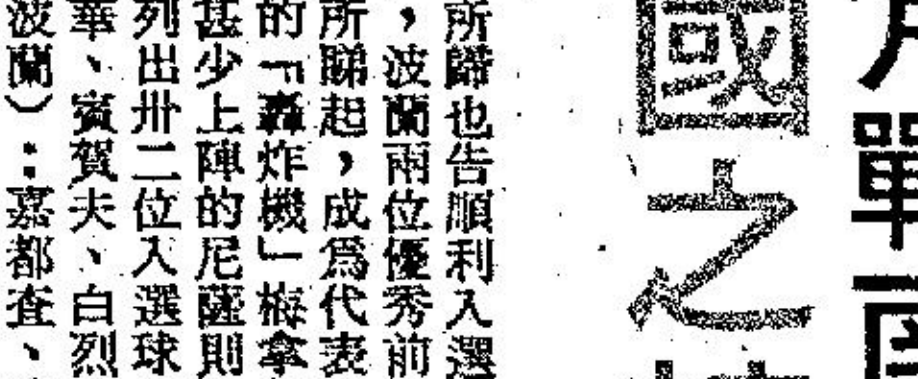 單
國之
所歸也告順利入選
，波蘭兩位優秀前
所睇起，成爲代表
的「轟炸機」梅拿
甚少上陣的尼薩則
列出卅二位入選球
華、賓賀夫、白烈
波蘭）：嘉都查、